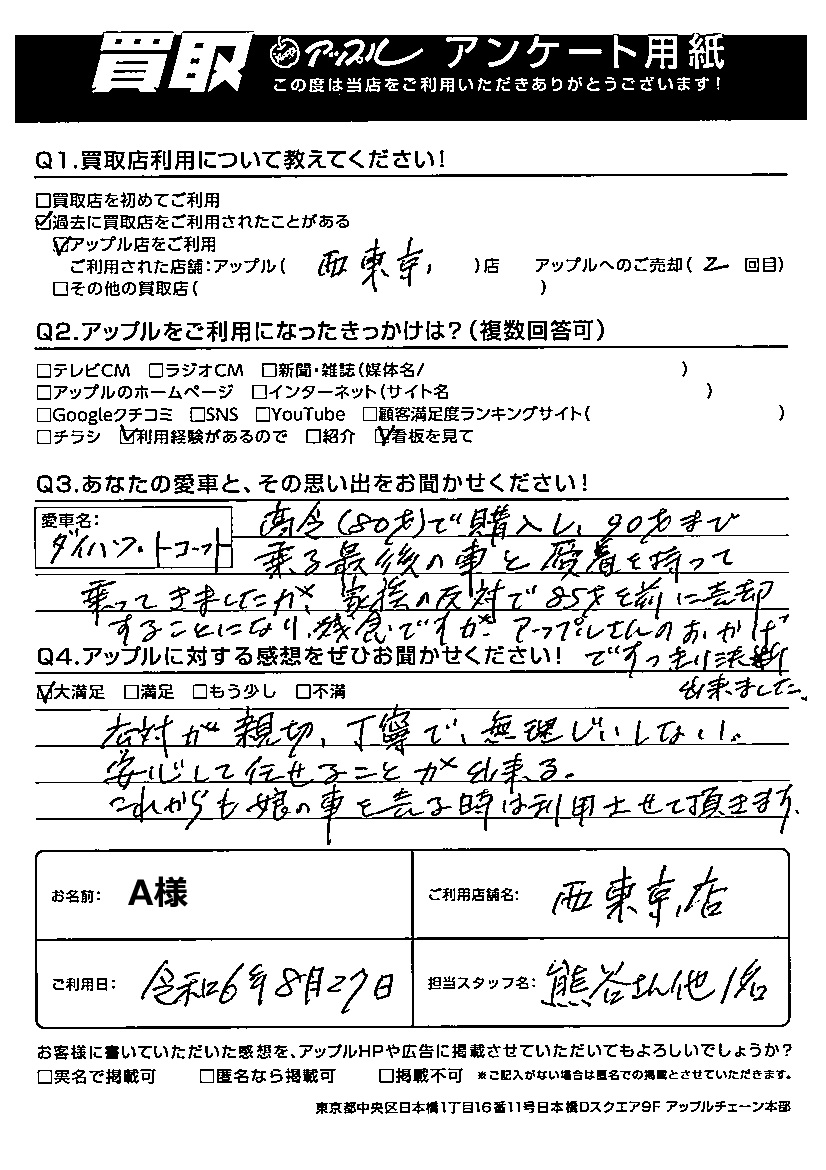 買取 アップル アンケート用紙
この度は当店をご利用いただきありがとうございます!
Q1.買取店利用について教えてください!
□買取店を初めてご利用
☑過去に買取店をご利用されたことがある
☑アップル店をご利用
ご利用された店舗:アップル( 西東京 )店 アップルへのご売却( 2 回目)
□その他の買取店( )
Q2.アップルをご利用になったきっかけは?(複数回答可)
□テレビCM □ラジオCM □新聞・雑誌(媒体名/ )
□アップルのホームページ □インターネット(サイト名 )
□Googleクチコミ □SNS □YouTube □顧客満足度ランキングサイト( )
□チラシ ☑利用経験があるので □紹介 ☑看板を見て
Q3.あなたの愛車と、その思い出をお聞かせください!
愛車名:
ダイハツ・トコット
高令(80才)で購入し、90才まで
乗る最後の車と愛着を持って
乗ってきましたが、家族の反対で85才を前に売却
することになり、残念ですが、アップルさんのおかげ
ですっきり決断
出来ました。
Q4.アップルに対する感想をぜひお聞かせください!
☑大満足 □満足 □もう少し □不満
応対が親切、丁寧で、無理じいしない。
安心して任せることが出来る。
これからも娘の車を売る時は利用させて頂きます。
お名前: A様
ご利用店舗名: 西東京店
ご利用日: 令和6年8月27日
担当スタッフ名: 熊谷さん他1名
お客様に書いていただいた感想を、アップルHPや広告に掲載させていただいてもよろしいでしょうか?
□実名で掲載可 □匿名なら掲載可 □掲載不可 ※ご記入がない場合は匿名での掲載とさせていただきます。
東京都中央区日本橋1丁目16番11号日本橋Dスクエア9F アップルチェーン本部